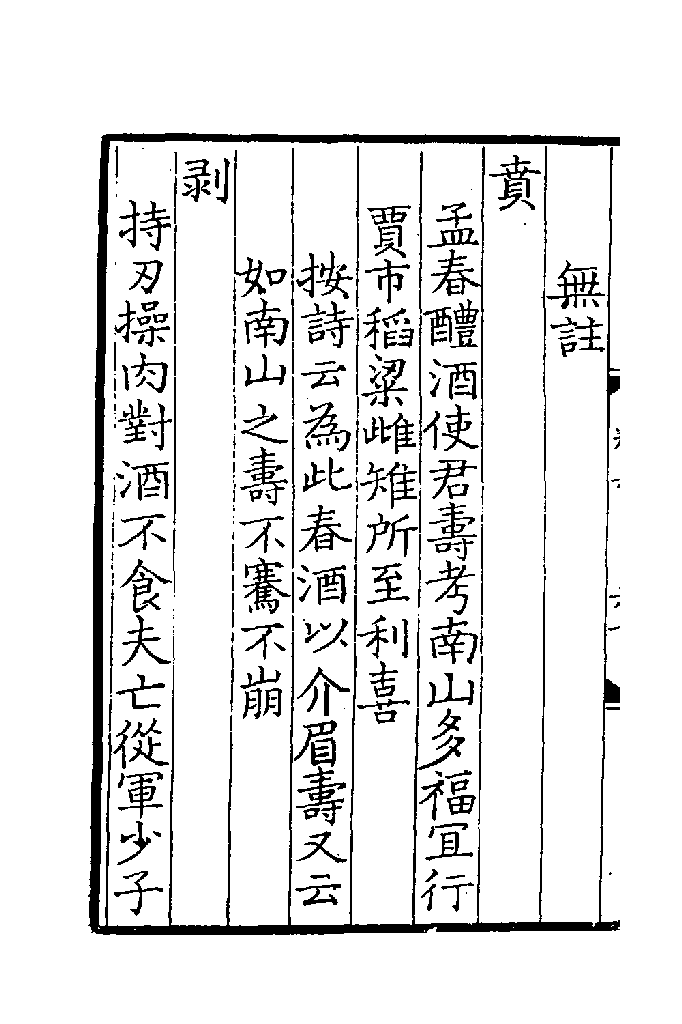 無註
賁
孟春醴酒使君壽考南山多福宜行
賈市稻粱雌雉所至利喜
按詩云為此春酒以介眉壽又云
如南山之壽不騫不崩
剥
持刃操肉對酒不食夫亡從軍少子